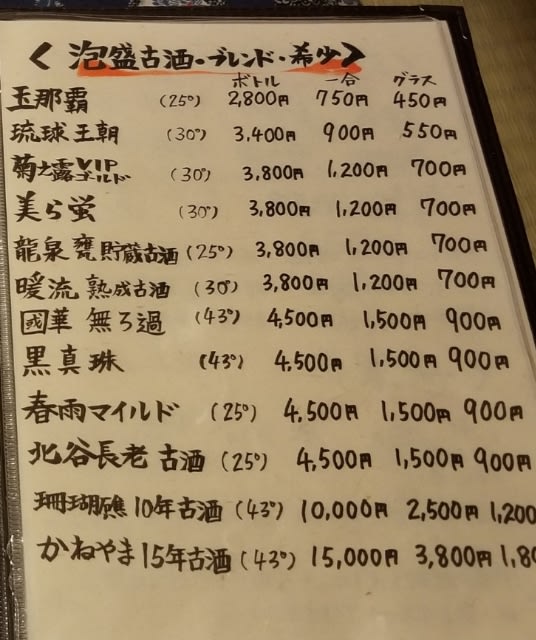 < 泡盛古酒・ブレンド・希少 >
ボトル 一合 グラス
玉那覇 (25°) 2,800円 750円 450円
琉球王朝 (30°) 3,400円 900円 550円
菊之露VIPゴールド (30°) 3,800円 1,200円 700円
美ら蛍 (30°) 3,800円 1,200円 700円
龍泉甕貯蔵古酒 (25°) 3,800円 1,200円 700円
暖流 熟成古酒 (30°) 3,800円 1,200円 700円
國華 無ろ過 (43°) 4,500円 1,500円 900円
黒真珠 (43°) 4,500円 1,500円 900円
春雨マイルド (25°) 4,500円 1,500円 900円
北谷長老 古酒 (25°) 4,500円 1,500円 900円
珊瑚礁 10年古酒 (43°) 10,000円 2,500円 1,200
かねやま 15年古酒 (43°) 15,000円 3,800円 1,80